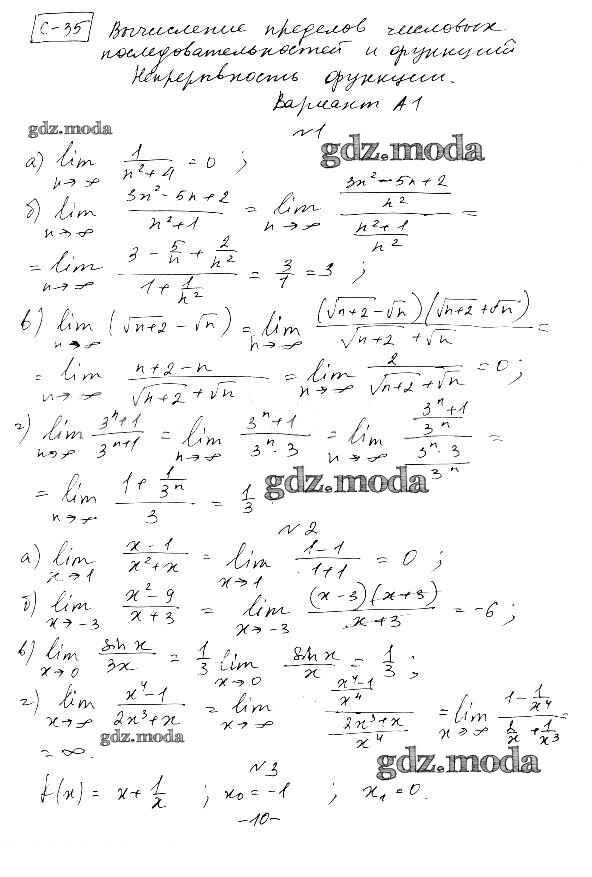 С-35 Вычисление пределов числовых
последовательностей и функций
Непрерывность функции.
Вариант А1
gdz.moda №1 gdz.moda
а) lim_{n→∞} 1/(n²+4) = 0 ;
б) lim_{n→∞} (3n²-5n+2)/(n²+1) = lim_{n→∞} ((3n²-5n+2)/n²)/((n²+1)/n²) =
= lim_{n→∞} (3 - 5/n + 2/n²)/(1 + 1/n²) = 3/1 = 3 ;
в) lim_{n→∞} (√(n+2) - √n) = lim_{n→∞} ((√(n+2) - √n)(√(n+2) + √n))/(√(n+2) + √n) =
= lim_{n→∞} (n+2-n)/(√(n+2) + √n) = lim_{n→∞} 2/(√(n+2) + √n) = 0 ;
г) lim_{n→∞} (3ⁿ+1)/(3ⁿ⁺¹) = lim_{n→∞} (3ⁿ+1)/(3ⁿ·3) = lim_{n→∞} ((3ⁿ+1)/3ⁿ)/((3ⁿ·3)/3ⁿ) =
= lim_{n→∞} (1 + 1/3ⁿ)/3 = 1/3 gdz.moda
№2
а) lim_{x→1} (x-1)/(x²+x) = lim_{x→1} (1-1)/(1+1) = 0 ;
б) lim_{x→-3} (x²-9)/(x+3) = lim_{x→-3} ((x-3)(x+3))/(x+3) = -6 ;
в) lim_{x→0} sin x/3x = 1/3 lim_{x→0} sin x/x = 1/3 ;
г) lim_{x→∞} (x⁴-1)/(2x³+x) = lim_{x→∞} ((x⁴-1)/x⁴)/((2x³+x)/x⁴) = lim_{x→∞} (1 - 1/x⁴)/(2/x + 1/x³) =
= ∞. gdz.moda
№3 gdz.moda
f(x) = x + 1/x ; x₀ = -1 ; x₁ = 0.
-10-